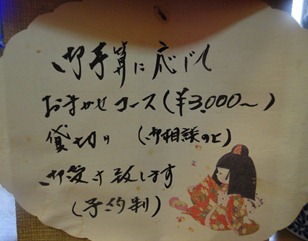 御予算に応じて
おまかせコース(¥3,000〜)
貸切り (御相談のと)
御受け致します
(予約制)